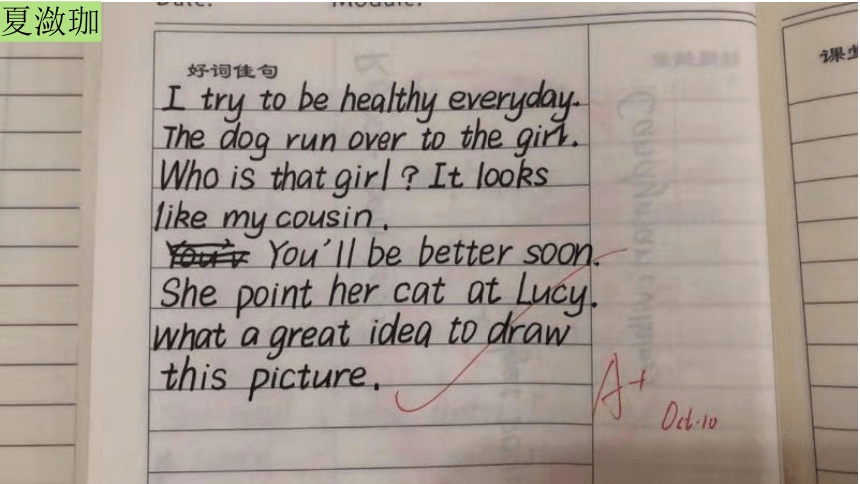 夏潋珈
好词佳句
I try to be healthy everyday.
The dog run over to the girl.
Who is that girl? It looks
like my cousin.
You'll be better soon.
She point her cat at Lucy.
what a great idea to draw
this picture.
A+
Oct.10